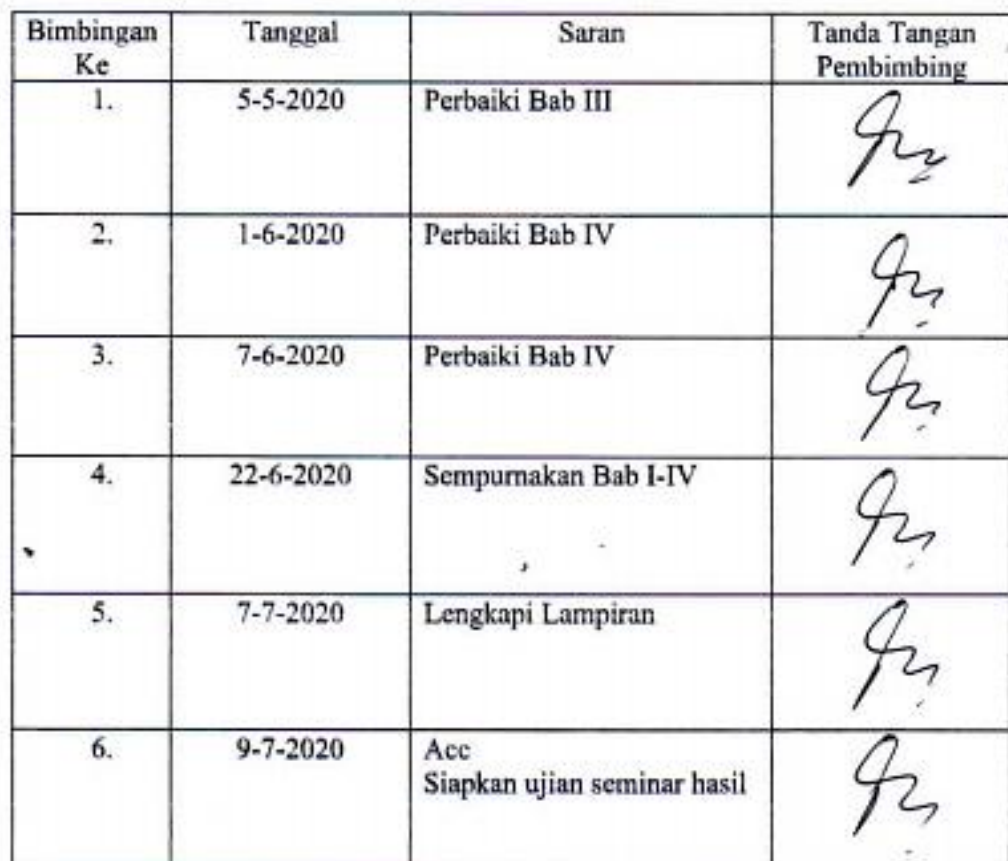 Bimbingan Ke Tanggal Saran Tanda Tangan Pembimbing
1. 5-5-2020 Perbaiki Bab III
2. 1-6-2020 Perbaiki Bab IV
3. 7-6-2020 Perbaiki Bab IV
4. 22-6-2020 Sempurnakan Bab I-IV
5. 7-7-2020 Lengkapi Lampiran
6. 9-7-2020 Acc
Siapkan ujian seminar hasil